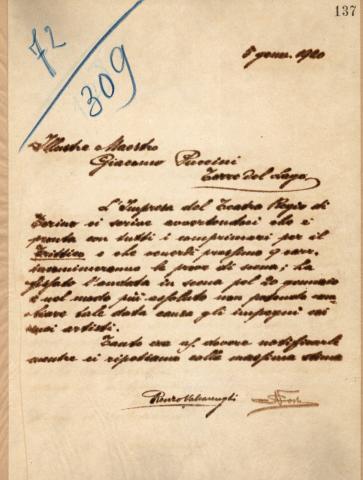 137
72
309
5 genn. 1920
Illustre Maestro
Giacomo Puccini
Torre del Lago
L'Impresa del Teatro Regio di
Torino ci scrive avvertendoci che è
pronta con tutti i comprimari per il
Trittico e che venerdì prossimo 9 corr.
incomincieranno le prove di scena; ha
fissato l'andata in scena pel 20 gennaio
e nel modo più assoluto non potendo cam
biare tale data causa gli impegni coi
suoi artisti.
Tanto era ns/ dovere notificarle
mentre ci ripetiamo colla massima stima
Renzo Valcarenghi